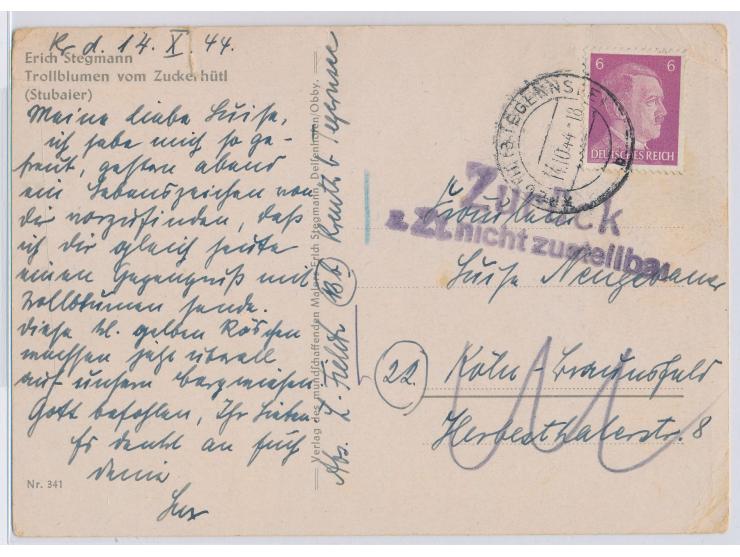 Kr. d. 14. X. 44.
Erich Stegmann
Trollblumen vom Zuckerhütl
(Stubaier)
Meine liebe Luise,
ich habe mich so ge-
freut, gestern abend
ein Lebenszeichen von
dir vorzufinden, daß
ich dir gleich heute
einen Gegengruß mit
Trollblumen sende.
Diese kl. gelben Röschen
wachsen jetzt überall
auf unsern Bergwiesen.
Gott befohlen, Ihr Lieben
Es denkt an Euch
deine
Nr. 341
Verlag des mundschaffenden Malers Erich Stegmann, Deisenhofen/Obby.
Abs. L. (13b) Kreuth b Tegernsee
KREUTH (B TEGERNSEE)
14.10.44-18
6 6
DEUTSCHES REICH
Zurück
z. Zt. nicht zustellbar
Fräulein
Luise Neugebauer
(22) Köln-Braunsfeld
Herbesthalerstr. 8